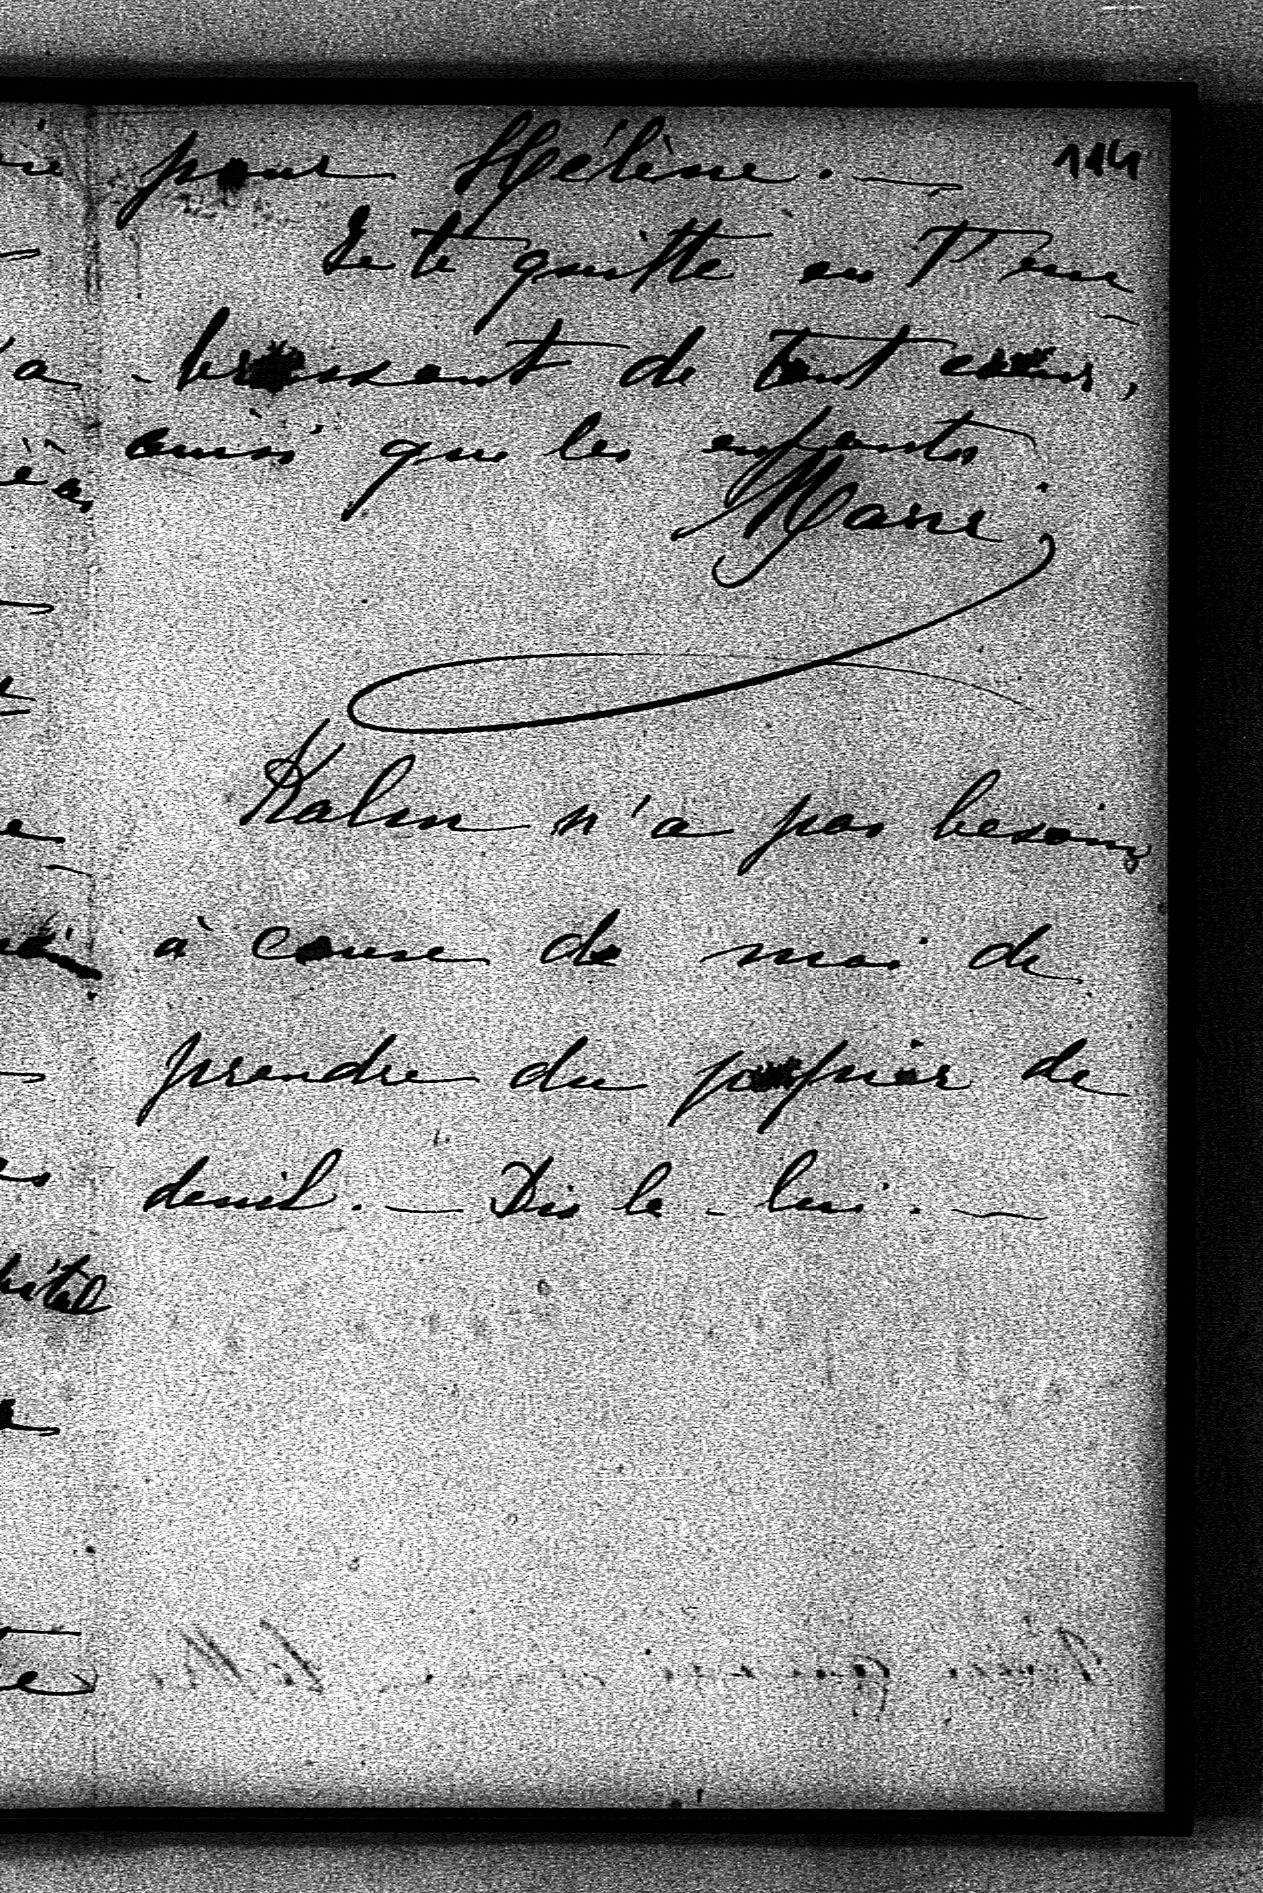 114
pour Hélène. —
Je te quitte en t'em
-brassant de tout coeur,
ainsi que les enfants
Marie
Kahn n'a pas besoin,
à cause de moi de
prendre du papier de
deuil. — Dis le - lui. —